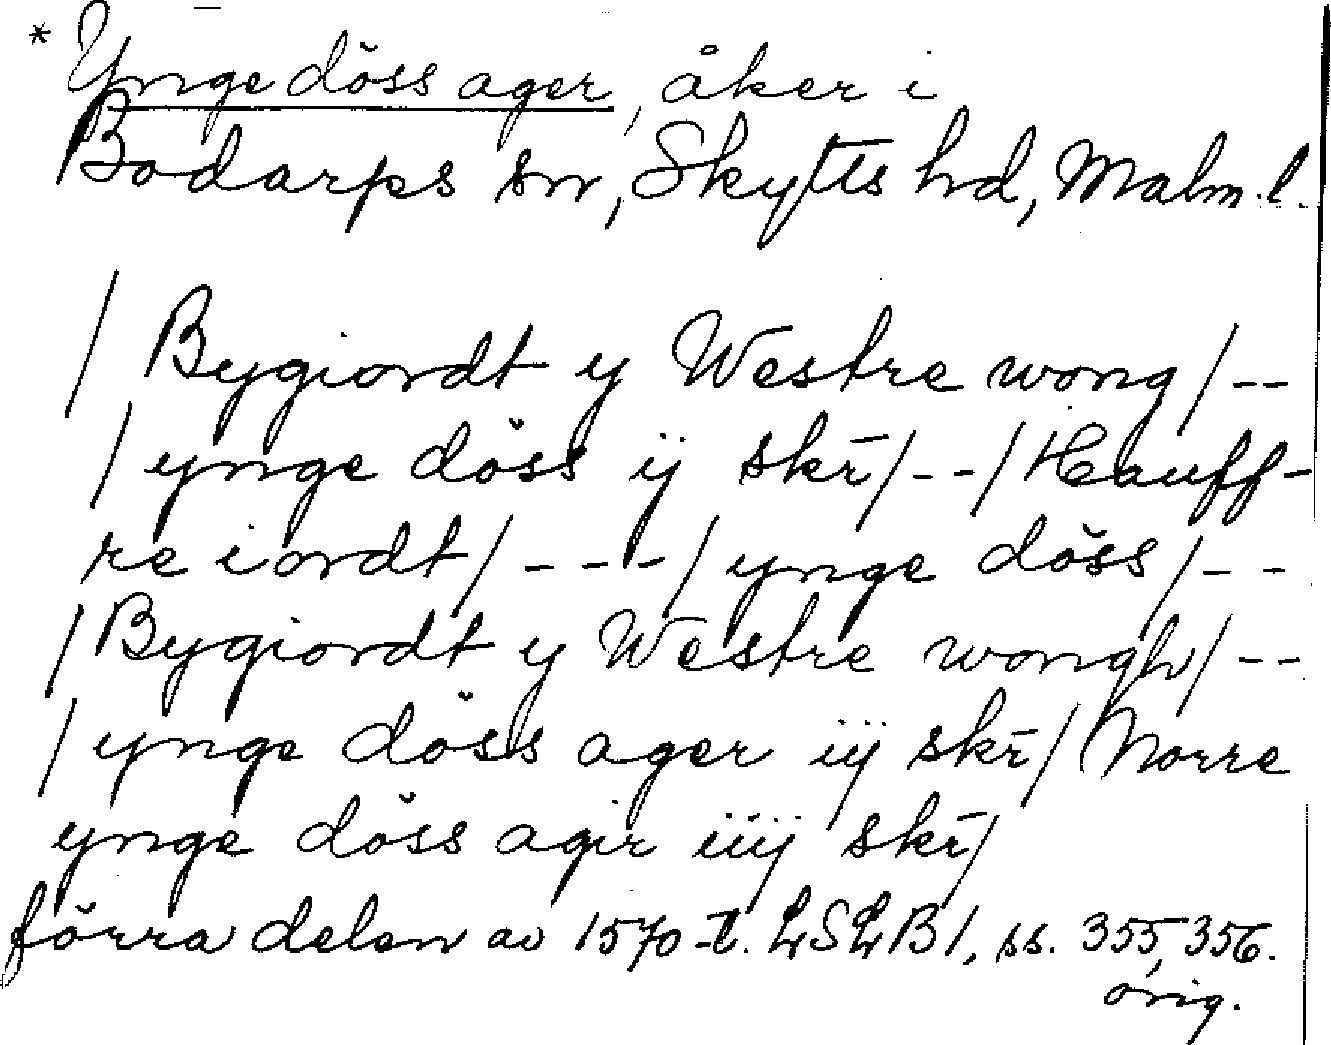 * Ynge döss ager, åker i
Bodarps sn, Skytts hd, Malm. l.
/ Bygiordt y Westre wong/--
/ ynge döss ij skr̄/--/Hauff-
re iordt/---/ynge döss/--
/Bygiordt y Westre wongh/--
/ ynge döss ager iij skr̄/Norre
ynge döss agir iiij skr̄/
förra delen av 1570-t. LSLB1, ss. 355, 356.
orig.